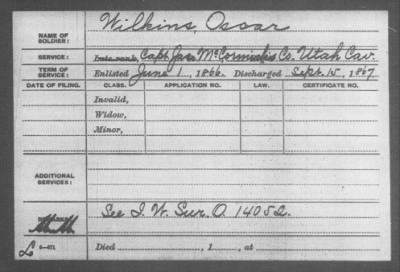 Wilkins, Oscar
NAME OF SOLDIER:
SERVICE: Late rank, Capt. Jas. McCormick's Co. Utah Cav.
TERM OF SERVICE: Enlisted June 1, 1866. Discharged Sept. 15, 1867
DATE OF FILING. CLASS. APPLICATION NO. LAW. CERTIFICATE NO.
Invalid,
Widow,
Minor,
ADDITIONAL SERVICES:
See I. W. Sur. O. 14052.
MM
6—071
Died , 1 , at